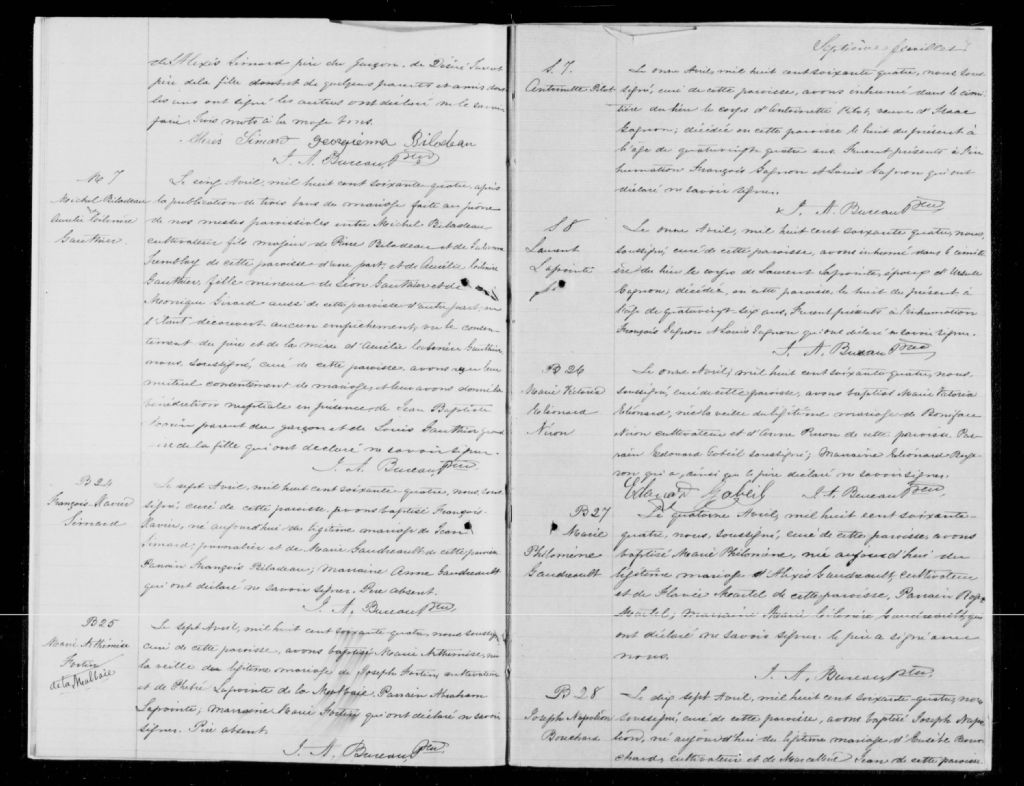 de Alexis Simard père du garçon, de Désiré
père de la fille dont de quelques parents et amis dont
les uns ont signé les autres ont déclaré ne le savoir
faire. Trois mots à la marge bons.
Alexis Simard Georgienna Bilodeau
J. A. Bureau Ptre
M 7
Michel Biladeau
Aurélie
Gauthier
Le cinq Avril, mil huit cent soixante quatre, après
la publication de trois bans de mariage faite au prône
de nos messes paroissiales entre Michel Biladeau
cultivateur fils majeur de Biladeau et de
Tremblay de cette paroisse d'une part, et de Aurélie
Gauthier, fille mineure de Léon Gauthier et de
Monique Girard aussi de cette paroisse d'autre part, ne
s'étant découvert aucun empêchement, vu le consen-
tement du père et de la mère d'Aurélie Gauthier
nous, soussigné, curé de cette paroisse, avons reçu leur
mutuel consentement de mariage, et leur avons donné la
bénédiction nuptiale en présence de Jean Baptiste
parent du garçon et de Louis Gauthier
de la fille qui ont déclaré ne savoir signer.
J. A. Bureau Ptre
B 24
François Xavier
Simard
Le sept Avril, mil huit cent soixante quatre, nous sous-
signé, curé de cette paroisse, avons baptisé François
Xavier, né aujourd'hui du légitime mariage de Jean
Simard, journalier et de Marie Gaudreault de cette paroisse
Parrain François Biladeau; Marraine Anne Gaudreault
qui ont déclaré ne savoir signer. Père absent.
J. A. Bureau Ptre
B 25
Marie Arthémise
Fortin
de la Malbaie
Le sept Avril, mil huit cent soixante quatre, nous soussigné
curé de cette paroisse, avons baptisé Marie Arthémise, née
la veille du légitime mariage de Joseph Fortin, cultivateur
et de Phébé Lapointe de la Malbaie. Parrain Abraham
Lapointe; Marraine Marie Fortin qui ont déclaré ne savoir
signer. Père absent.
J. A. Bureau Ptre
Septième feuillet
S. 7.
Antoinette Pilot
Le onze Avril, mil huit cent soixante quatre, nous sous-
signé, curé de cette paroisse, avons inhumé dans le cime-
tière du lieu le corps d'Antoinette Pilot, veuve d'Isaac
Gagnon; décédée en cette paroisse le huit du présent à
l'âge de quatrevingt quatre ans. Furent présents à l'in-
humation François Gagnon et Louis Gagnon qui ont
déclaré ne savoir signer.
J. A. Bureau Ptre
S 8
Laurent
Lapointe
Le onze Avril, mil huit cent soixante quatre, nous,
soussigné, curé de cette paroisse, avons inhumé dans le cimetiè-
re du lieu le corps de Laurent Lapointe, époux d'Ursule
Gagnon; décédé, en cette paroisse le huit du présent à
l'âge de quatrevingt six ans. Furent présents à l'inhumation
François Gagnon et Louis Gagnon qui ont déclaré ne savoir signer.
J. A. Bureau Ptre
B 26
Marie Victoria
Eléonard
Néron
Le onze Avril, mil huit cent soixante quatre, nous
soussigné, curé de cette paroisse, avons baptisé Marie Victoria
Eléonard, née la veille du légitime mariage de Boniface
Néron cultivateur et d'Anne Peron de cette paroisse. Par-
rain Edouard Gobeil soussigné; Marraine Eléonard
qui a, ainsi que le père déclaré ne savoir signer.
Edouard Gobeil J. A. Bureau Ptre
B 27
Marie
Philomène
Gaudreault
Le quatorze Avril, mil huit cent soixante-
quatre, nous, soussigné, curé de cette paroisse, avons
baptisé Marie Philomène, née aujourd'hui du
légitime mariage d'Alexis Gaudreault, cultivateur
et de Flavie Martel de cette paroisse. Parrain
Martel; Marraine Marie Gaudreault, qui
ont déclaré ne savoir signer. Le père a signé avec
nous.
J. A. Bureau Ptre
B 28
Joseph Napoléon
Bouchard
Le dix sept Avril, mil huit cent soixante quatre, nous
soussigné, curé de cette paroisse, avons baptisé Joseph Napo-
léon, né aujourd'hui du légitime mariage d'Eusèbe Bou-
chard, cultivateur et de Marcelline Jean de cette paroisse